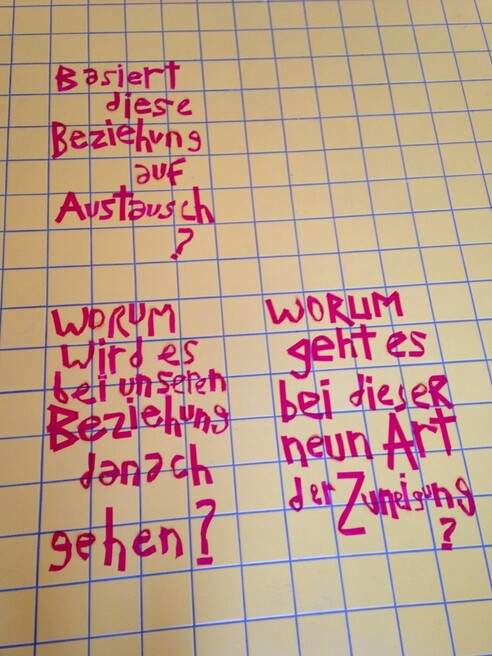 Basiert
diese
Beziehung
auf
Austausch
?
WORUM
wird es
bei unseren
Beziehung
danach
gehen?
WORUM
geht es
bei dieseR
neun Art
der Zuneigung
?